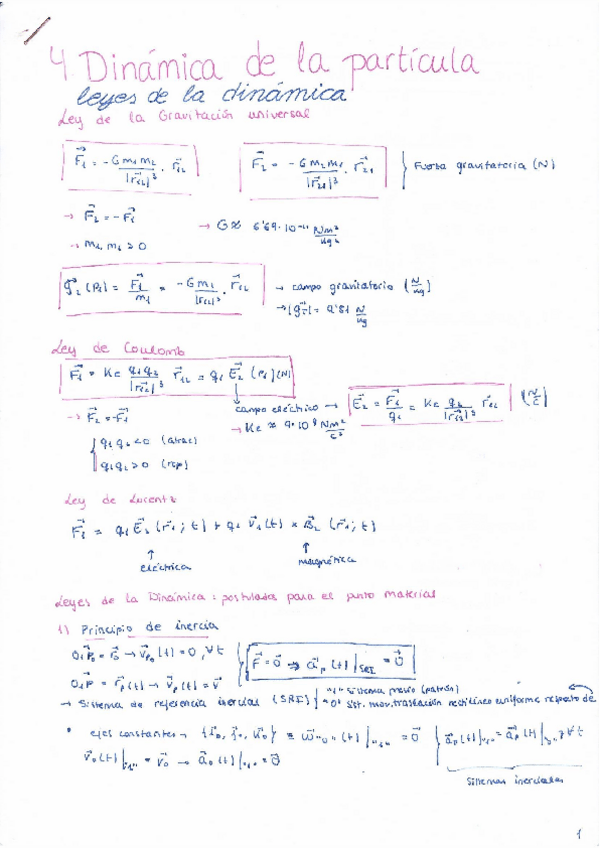 4. Dinámica de la partícula
leyes de la dinámica
Ley de la Gravitación universal
F⃗₁ = -G m₁ m₂ / |r⃗₁₂|³ · r⃗₁₂
F⃗₂ = -G m₂ m₁ / |r⃗₂₁|³ · r⃗₂₁ } Fuerza gravitatoria (N)
→ F⃗₂ = -F⃗₁
→ G ≈ 6'69·10⁻¹¹ Nm²/kg²
→ m₁, m₂ > 0
g⃗₂ (P₁) = F⃗₁/m₁ = -G m₂ / |r₁₂|³ · r⃗₁₂ → campo gravitatorio (N/kg)
→ |g⃗| = 9'81 N/kg
Ley de Coulomb
F⃗₁ = Ke q₁q₂ / |r⃗₁₂|³ r⃗₁₂ = q₁ E⃗₂ (P₁) (N)
campo eléctrico → E⃗₂ = F⃗₁/q₁ = Ke q₂ / |r⃗₁₂|³ r⃗₁₂ (N/C)
→ F⃗₂ = -F⃗₁
→ Ke ≈ 9·10⁹ Nm²/C²
q₁q₂ < 0 (atrac)
q₁q₂ > 0 (rep)
Ley de Lorentz
F⃗₁ = q₁ E⃗₂ (r⃗₁; t) + q₁ v⃗₁(t) × B⃗₂ (r⃗₁; t)
↑ eléctrica
↑ magnética
Leyes de la Dinámica: postulados para el punto material
1) Principio de inercia
O₁P₀ = r⃗₀ → v⃗p₀ (t) = 0, ∀t
F⃗ = 0⃗ ⇒ a⃗p (t)|SRI = 0⃗
O₁P = r⃗p(t) → v⃗p (t) = v⃗
→ Sistema de referencia inercial (SRI) { "1" sistema previo (patrón)
"0" Sist. mov. traslación rectilíneo uniforme respecto de
• ejes constantes → {i⃗₀, j⃗₀, k⃗₀} ≡ ω⃗"0" (t)|"1" = 0⃗
{ a⃗p (t)|"1" = a⃗p (t)|"0", ∀t
v⃗₀ (t)|"1" = v⃗₀ → a⃗₀ (t)|"1" = 0⃗
sistemas inerciales
1